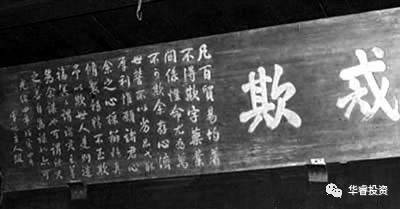 戒欺
凡百貿易均着
不得欺字藥業
關係性命尤為萬
不可欺余存心濟
世誓不以劣品弋取
厚利惟願諸君心
余之心採辦務真
修製務精不至欺
予以欺世人是則造
福冥冥謂諸君之善
為余謀也可謂諸君
之善自為謀也亦可
华睿投资